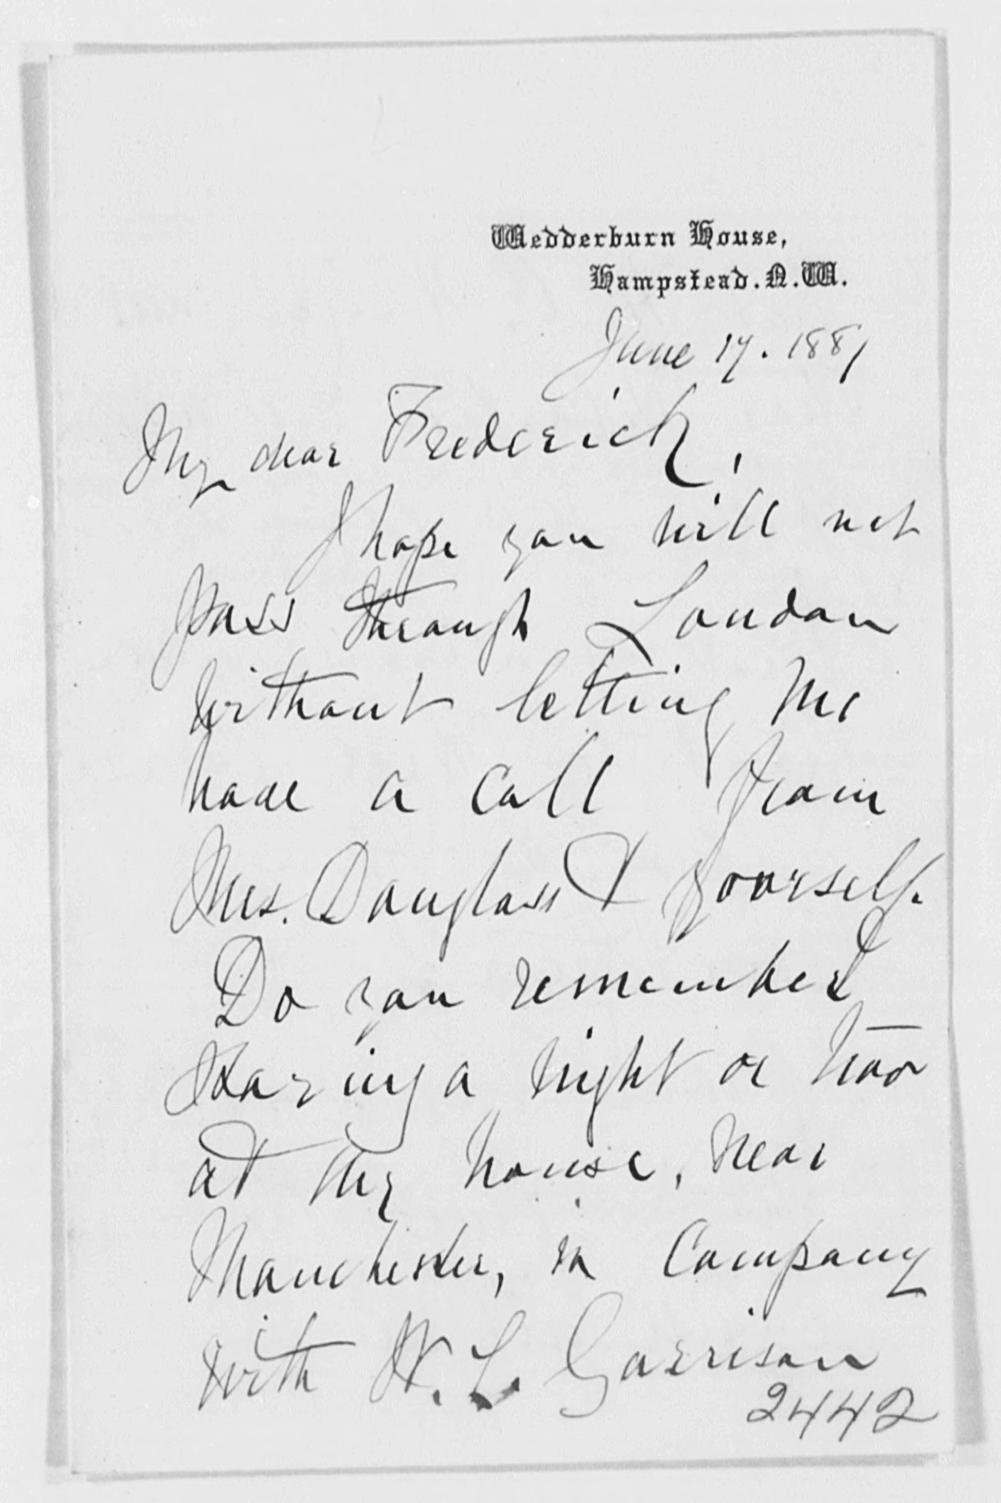 Wedderburn House,
Hampstead. N.W.
June 17. 1887
My dear Frederick,
I hope you will not
pass through London
without letting me
have a call from
Mrs. Douglass & yourself.
Do you remember
staying a night or two
at my house, near
Manchester, in company
with W. L. Garrison
2442